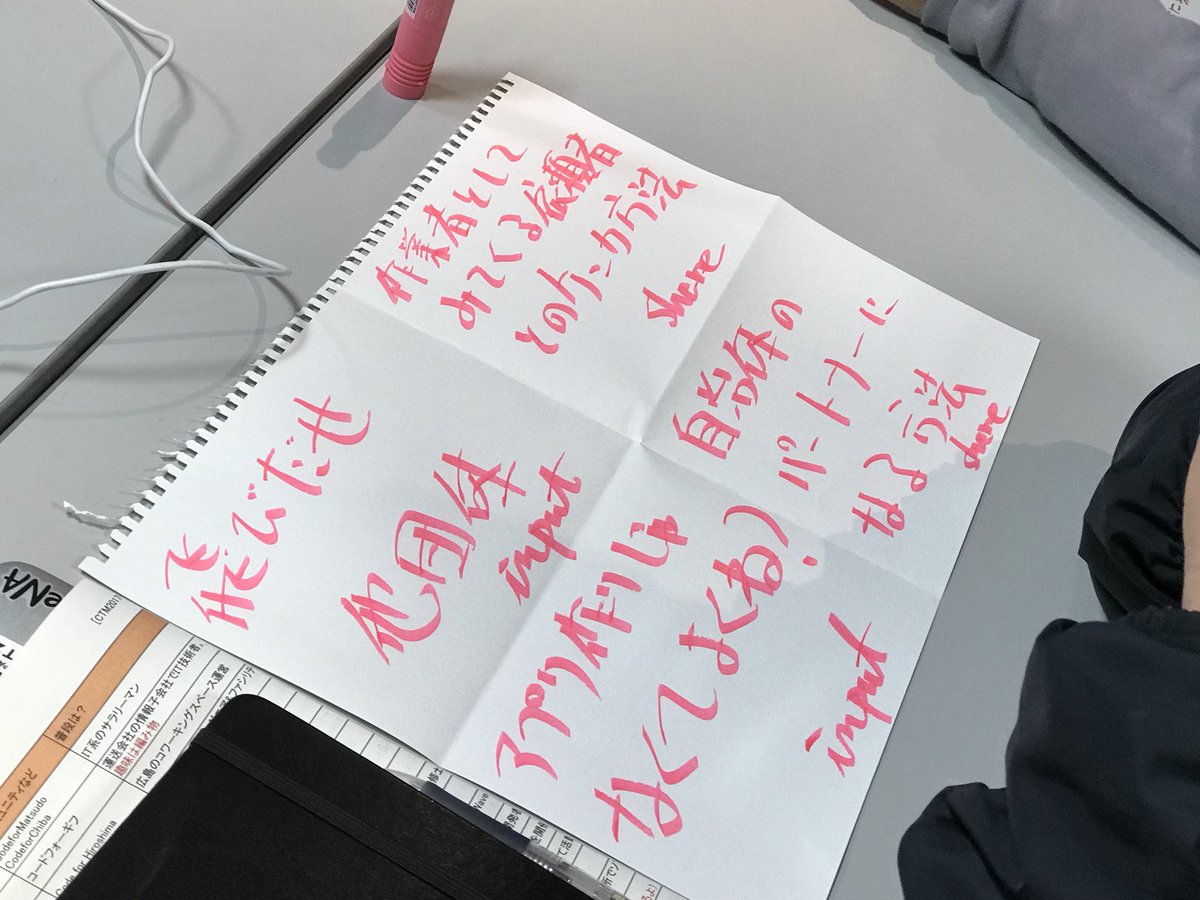 作業者として
みてくる依頼者
とのケンカ方法
share
自治体の
パートナーに
なる方法
share
飛びだせ
他団体
input
アプリ作りじゃ
なくてよくね?
input
eNA
[CTM2017
普段は?
IT系のサラリーマン
運送会社の情報子会社でIT技術者、
趣味は編み物
広島のコワーキングスペース運営
ュニティなど
CodeforMatsudo
CodeforChiba
コードフォーギフ
Code for Hiroshima